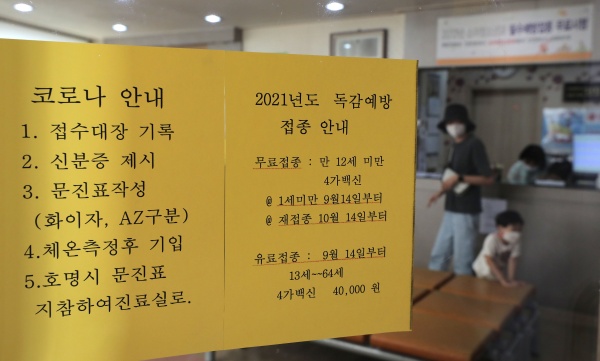 코로나 안내
1. 접수대장 기록
2. 신분증 제시
3. 문진표작성
(화이자, AZ구분)
4.체온측정후 기입
5.호명시 문진표
지참하여진료실로.
2021년도 독감예방
접종 안내
무료접종 : 만 12세 미만
4가백신
@ 1세미만 9월14일부터
@ 재접종 10월 14일부터
유료접종 : 9월 14일부터
13세~~64세
4가백신 40,000 원